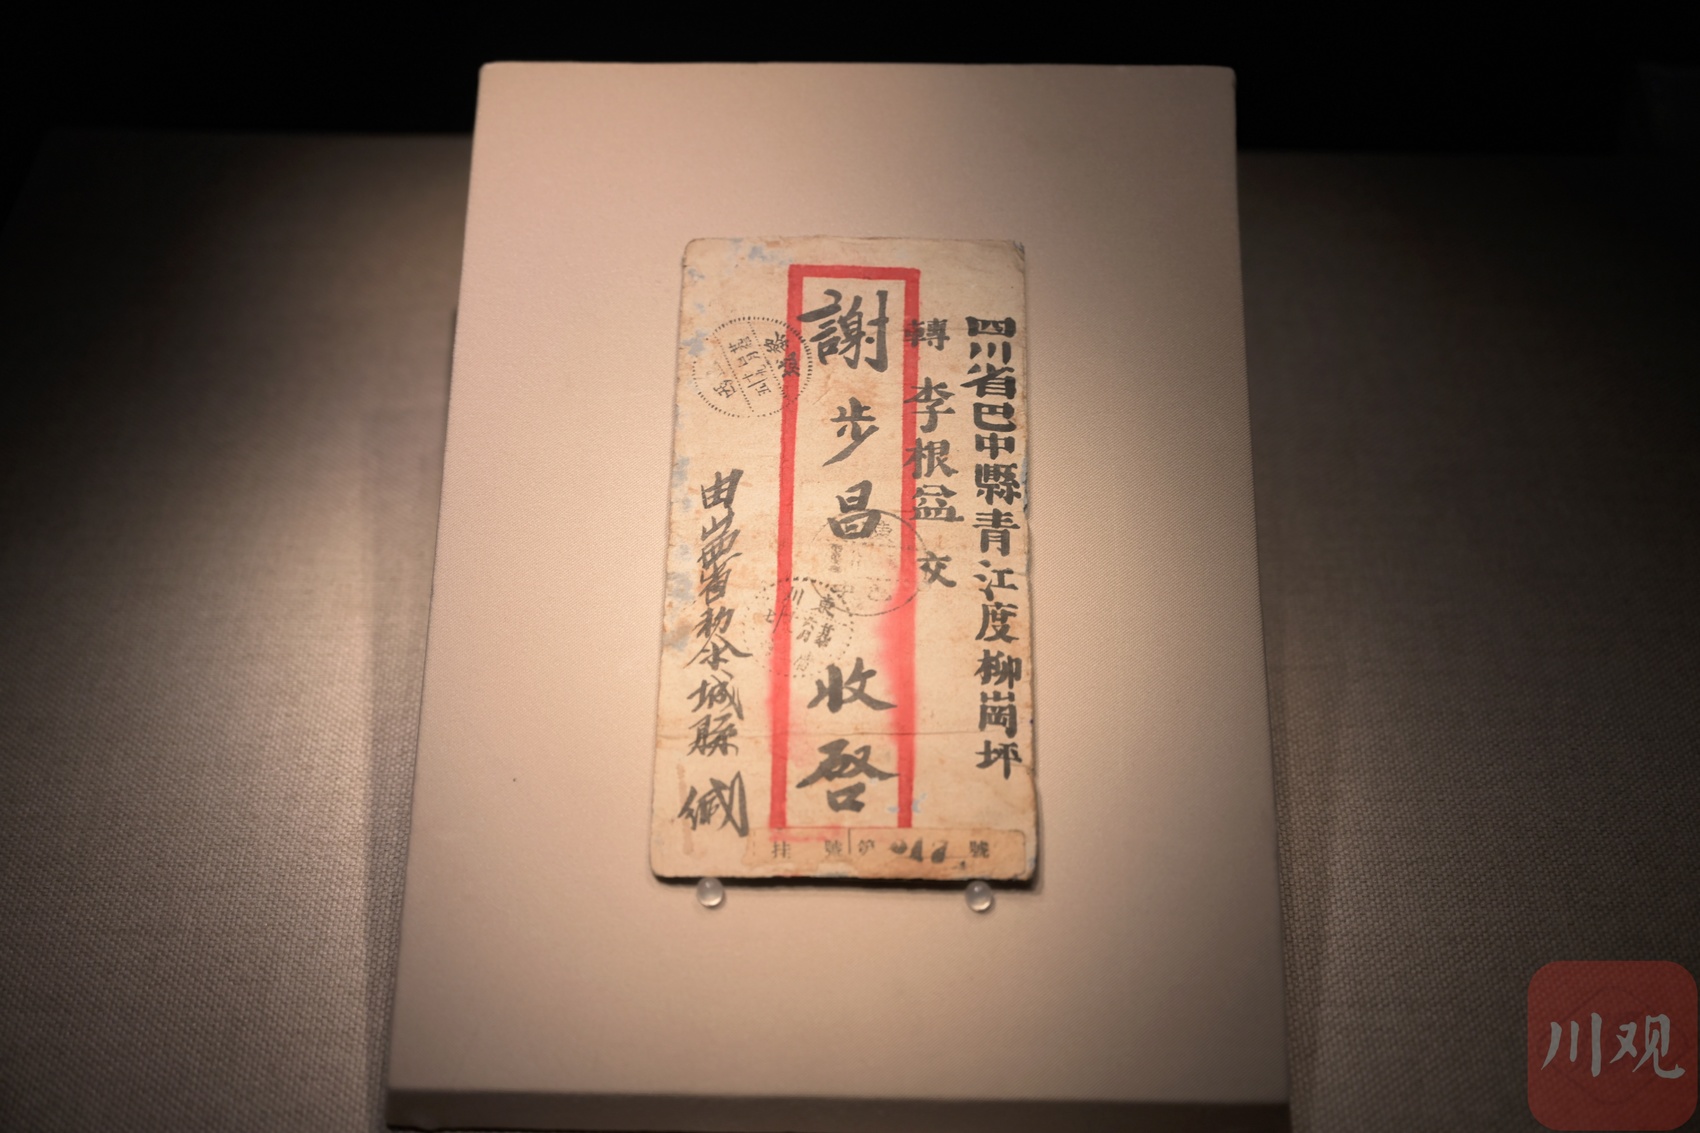 四川省巴中縣青江度柳崗坪
轉 李根盆 交
謝步昌 收啓
由山西省初公城縣 緘
挂號第 號
川观